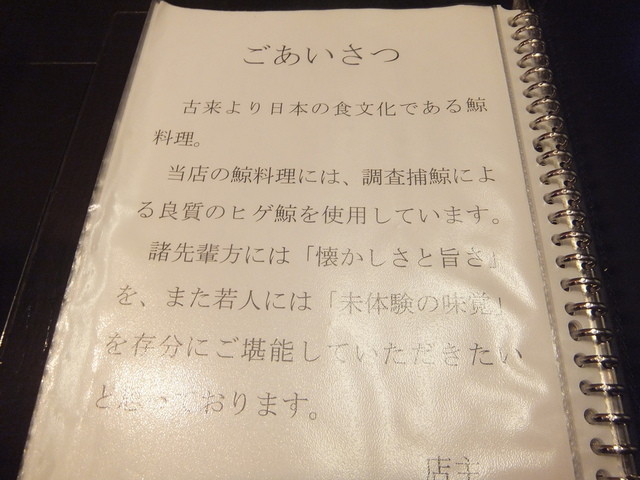 ごあいさつ
古来より日本の食文化である鯨
料理。
当店の鯨料理には、調査捕鯨によ
る良質のヒゲ鯨を使用しています。
諸先輩方には「懐かしさと旨さ」
を、また若人には「未体験の味覚」
を存分にご堪能していただきたい
と思っております。
店主